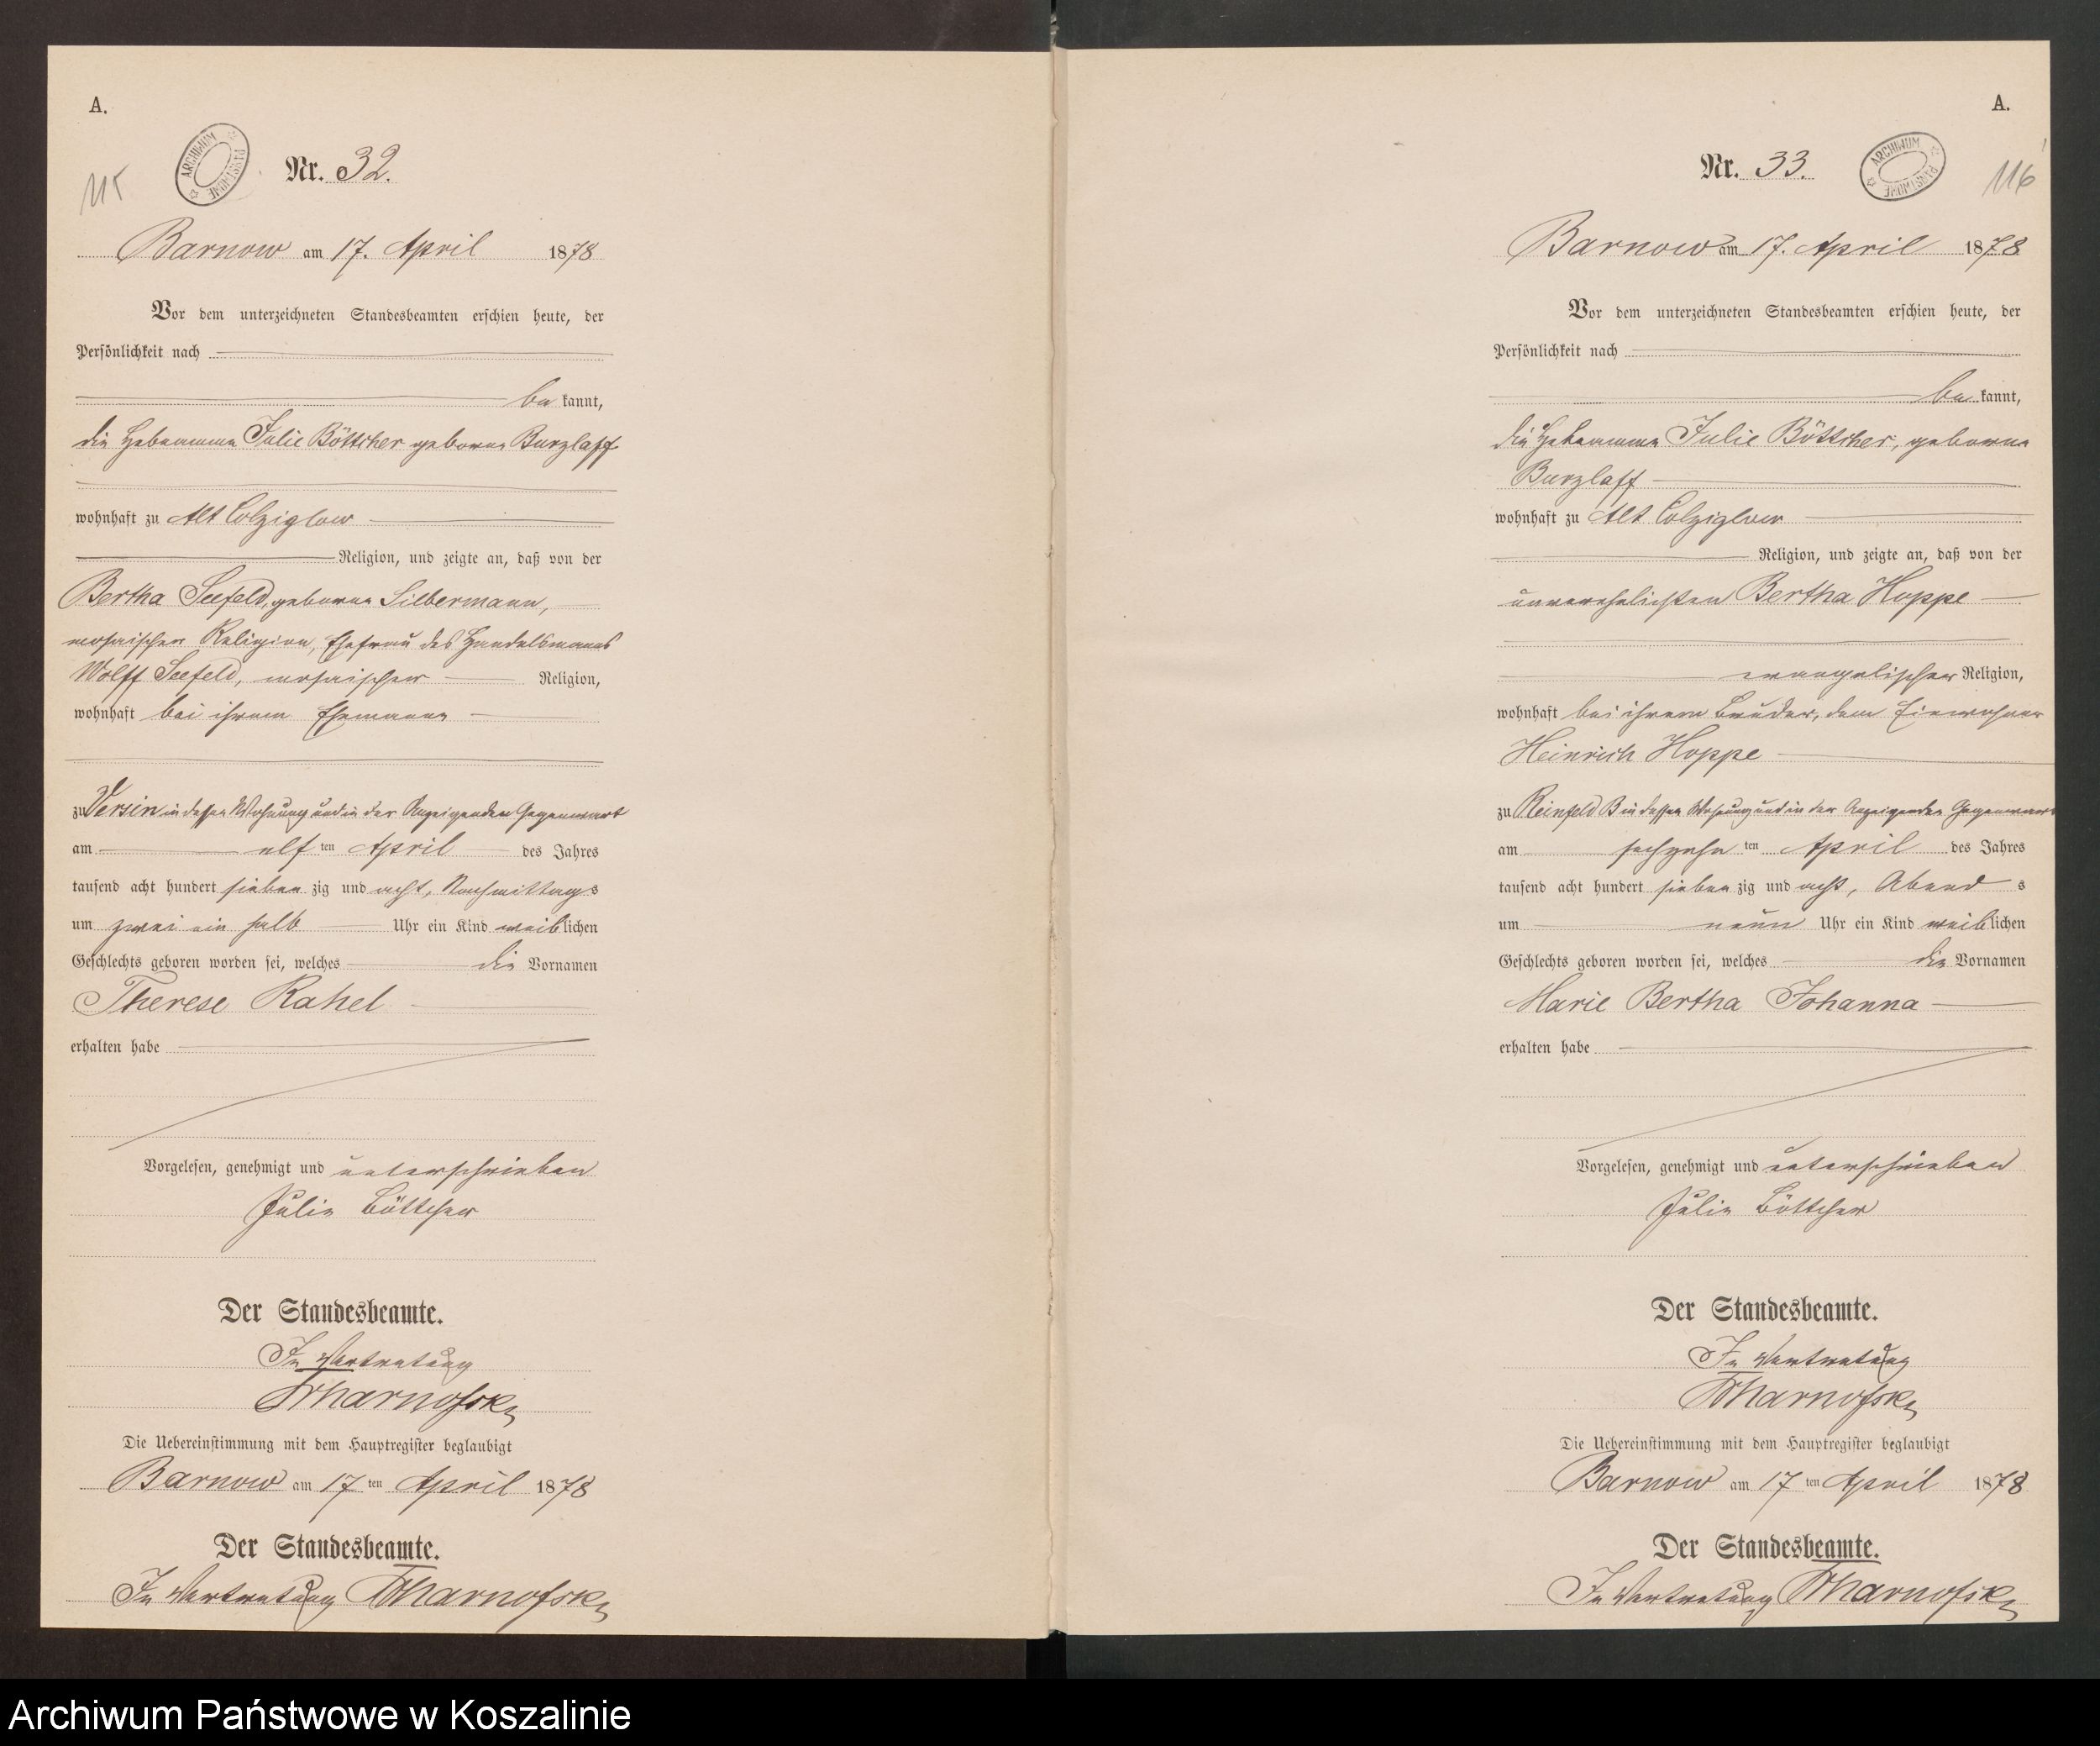 A.
115
ARCHIWUM PAŃSTWOWE
Nr. 32.
Barnow am 17. April 1878
Vor dem unterzeichneten Standesbeamten erschien heute, der
Persönlichkeit nach
be kannt,
die Hebeamme Julie Böttcher geborne Burzlaff
wohnhaft zu Alt Colziglow
Religion, und zeigte an, daß von der
Bertha Seefeld, geborne Silbermann,
mosaischer Religion, Ehefrau des Handelsmanns
Wolff Seefeld, mosaischer Religion,
wohnhaft bei ihrem Ehemanne
zu Versin in dessen Wohnung und in der Anzeigenden Gegenwart
am elf ten April des Jahres
tausend acht hundert sieben zig und acht, Nachmittags
um zwei ein halb Uhr ein Kind weiblichen
Geschlechts geboren worden sei, welches die Vornamen
Therese Rahel
erhalten habe
Vorgelesen, genehmigt und unterschrieben
Julie Böttcher
Der Standesbeamte.
In Vertretung
Die Uebereinstimmung mit dem Hauptregister beglaubigt
Barnow am 17 ten April 1878
Der Standesbeamte.
In Vertretung
A.
116
ARCHIWUM PAŃSTWOWE
Nr. 33.
Barnow am 17. April 1878
Vor dem unterzeichneten Standesbeamten erschien heute, der
Persönlichkeit nach
be kannt,
die Hebeamme Julie Böttcher, geborne
Burzlaff
wohnhaft zu Alt Colziglow
Religion, und zeigte an, daß von der
unverehelichten Bertha Hoppe
evangelischer Religion,
wohnhaft bei ihrem Bruder, dem Einwohner
Heinrich Hoppe
zu Reinfeld B in dessen Wohnung und in der Anzeigenden Gegenwart
am sechzehn ten April des Jahres
tausend acht hundert sieben zig und acht, Abend s
um neun Uhr ein Kind weiblichen
Geschlechts geboren worden sei, welches die Vornamen
Marie Bertha Johanna
erhalten habe
Vorgelesen, genehmigt und unterschrieben
Julie Böttcher
Der Standesbeamte.
In Vertretung
Die Uebereinstimmung mit dem Hauptregister beglaubigt
Barnow am 17 ten April 1878
Der Standesbeamte.
In Vertretung
Archiwum Państwowe w Koszalinie